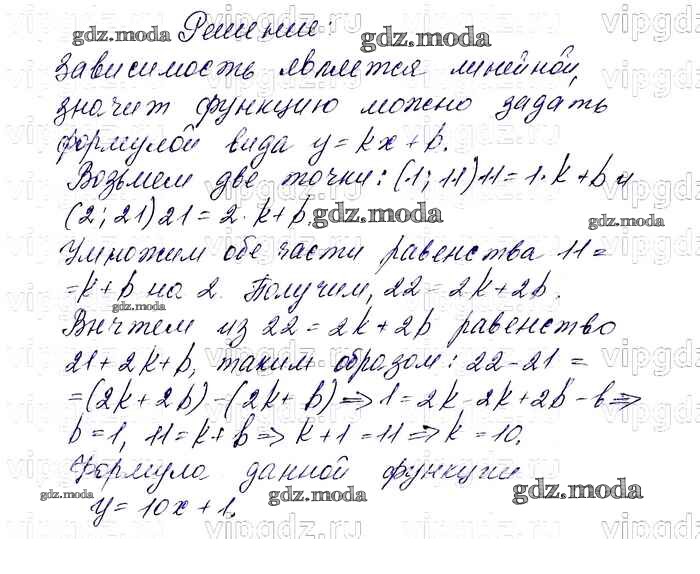 Решение:
зависимость является линейной,
значит функцию можно задать
формулой вида y = kx + b.
Возьмем две точки: (1; 11) 11 = 1 · k + b и
(2; 21) 21 = 2 · k + b.
Умножим обе части равенства 11 =
= k + b на 2. Получим, 22 = 2k + 2b.
Вычтем из 22 = 2k + 2b равенство
21 + 2k + b, таким образом: 22 - 21 =
= (2k + 2b) - (2k + b) ⇒ 1 = 2k - 2k + 2b - b ⇒
b = 1, 11 = k + b ⇒ k + 1 = 11 ⇒ k = 10.
Формула данной функции
y = 10x + 1.
gdz.moda
gdz.moda
gdz.moda
gdz.moda
gdz.moda
gdz.moda
gdz.moda
gdz.moda
gdz.moda
vipgdz.ru